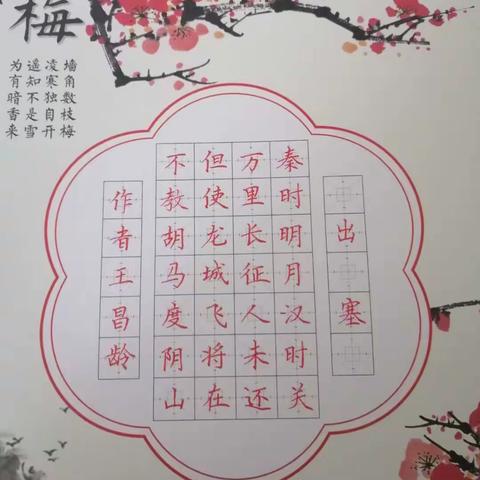 梅
墙角数枝梅
凌寒独自开
遥知不是雪
为有暗香来
出塞
秦时明月汉时关
万里长征人未还
但使龙城飞将在
不教胡马度阴山
作者王昌龄